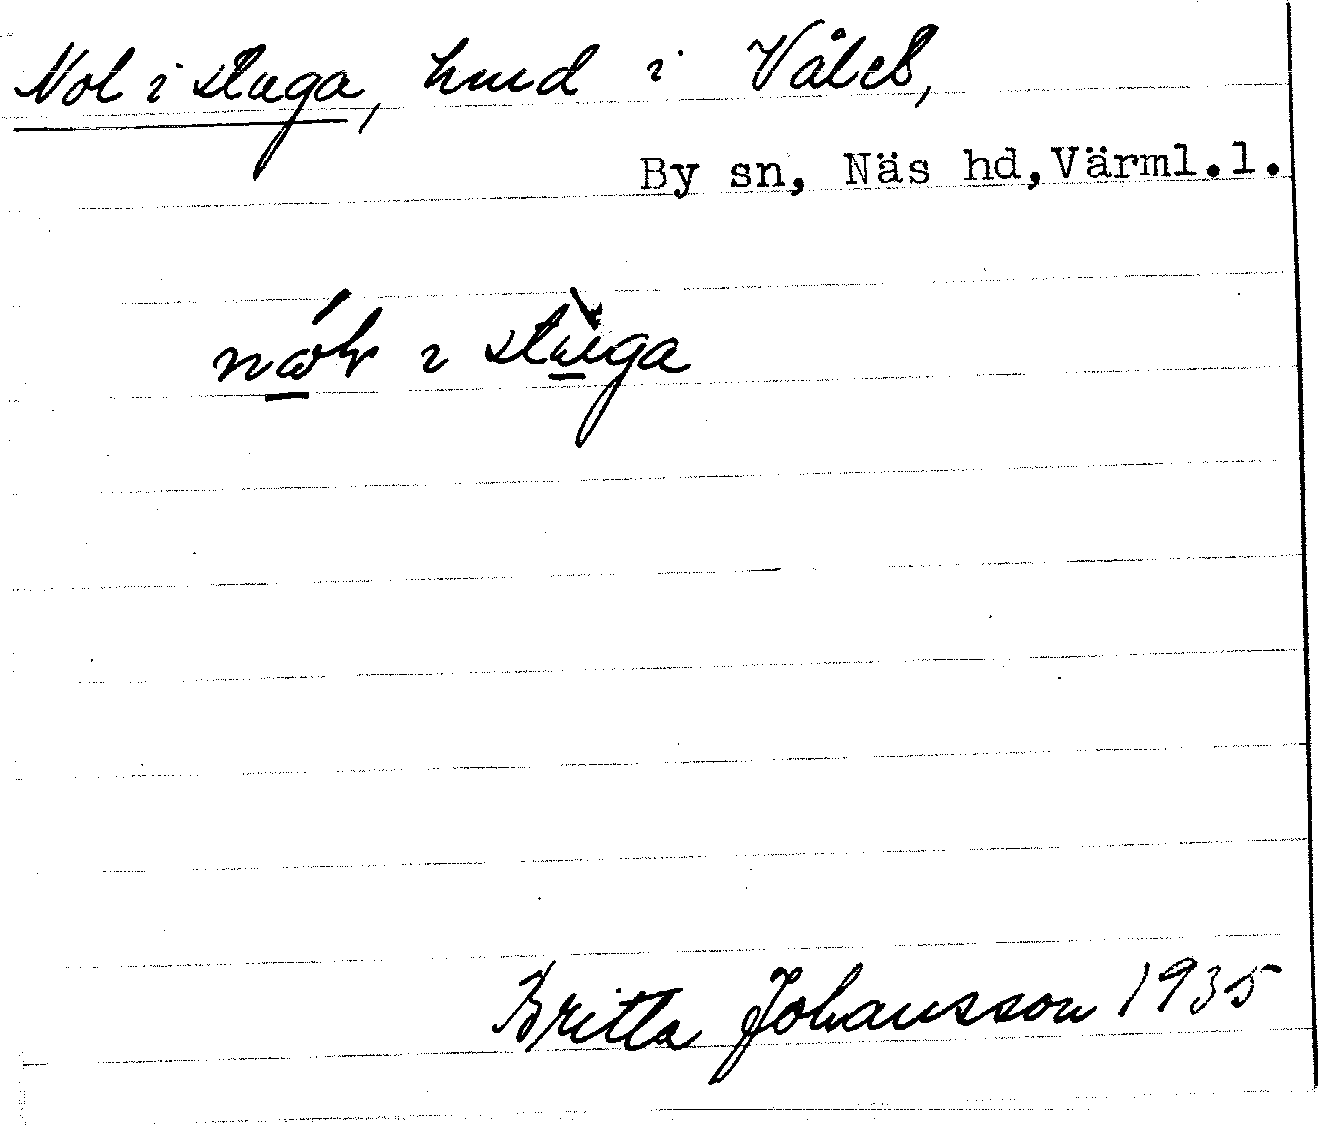 Nol i stuga, hmd i Vålet,
By sn, Näs hd, Värml.l.
i stuga
Britta Johansson 1935